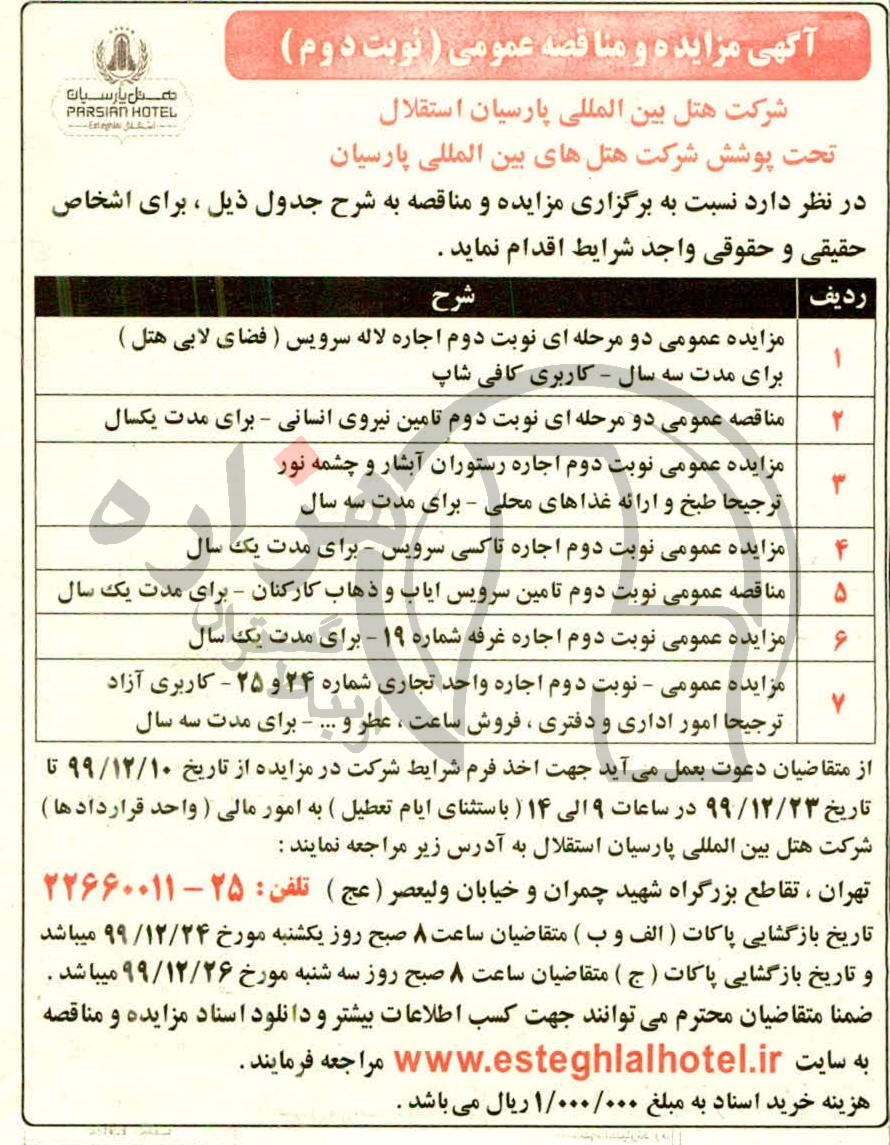 آگهی مزایده و مناقصه عمومی ( نوبت دوم )
هتل پارسیان
PARSIAN HOTEL
Esteghlal استقلال
شرکت هتل بین المللی پارسیان استقلال
تحت پوشش شرکت هتل های بین المللی پارسیان
در نظر دارد نسبت به برگزاری مزایده و مناقصه به شرح جدول ذیل ، برای اشخاص
حقیقی و حقوقی واجد شرایط اقدام نماید .
ردیف شرح
۱ مزایده عمومی دو مرحله ای نوبت دوم اجاره لاله سرویس ( فضای لابی هتل )
برای مدت سه سال - کاربری کافی شاپ
۲ مناقصه عمومی دو مرحله ای نوبت دوم تامین نیروی انسانی - برای مدت یکسال
۳ مزایده عمومی نوبت دوم اجاره رستوران آبشار و چشمه نور
ترجیحا طبخ و ارائه غذاهای محلی - برای مدت سه سال
۴ مزایده عمومی نوبت دوم اجاره تاکسی سرویس - برای مدت یک سال
۵ مناقصه عمومی نوبت دوم تامین سرویس ایاب و ذهاب کارکنان - برای مدت یک سال
۶ مزایده عمومی نوبت دوم اجاره غرفه شماره ۱۹ - برای مدت یک سال
۷ مزایده عمومی - نوبت دوم اجاره واحد تجاری شماره ۲۴ و ۲۵ - کاربری آزاد
ترجیحا امور اداری و دفتری ، فروش ساعت ، عطر و ... - برای مدت سه سال
از متقاضیان دعوت بعمل می آید جهت اخذ فرم شرایط شرکت در مزایده از تاریخ ۹۹/۱۲/۱۰ تا
تاریخ ۹۹/۱۲/۲۳ در ساعات ۹ الی ۱۴ ( باستثنای ایام تعطیل ) به امور مالی ( واحد قراردادها )
شرکت هتل بین المللی پارسیان استقلال به آدرس زیر مراجعه نمایند :
تهران ، تقاطع بزرگراه شهید چمران و خیابان ولیعصر ( عج ) تلفن : ۲۵ - ۲۲۶۶۰۰۱۱
تاریخ بازگشایی پاکات ( الف و ب ) متقاضیان ساعت ۸ صبح روز یکشنبه مورخ ۹۹/۱۲/۲۴ میباشد
و تاریخ بازگشایی پاکات ( ج ) متقاضیان ساعت ۸ صبح روز سه شنبه مورخ ۹۹/۱۲/۲۶ میباشد .
ضمنا متقاضیان محترم می توانند جهت کسب اطلاعات بیشتر و دانلود اسناد مزایده و مناقصه
به سایت www.esteghlalhotel.ir مراجعه فرمایند .
هزینه خرید اسناد به مبلغ ۱/۰۰۰/۰۰۰ ریال می باشد .
هزاره